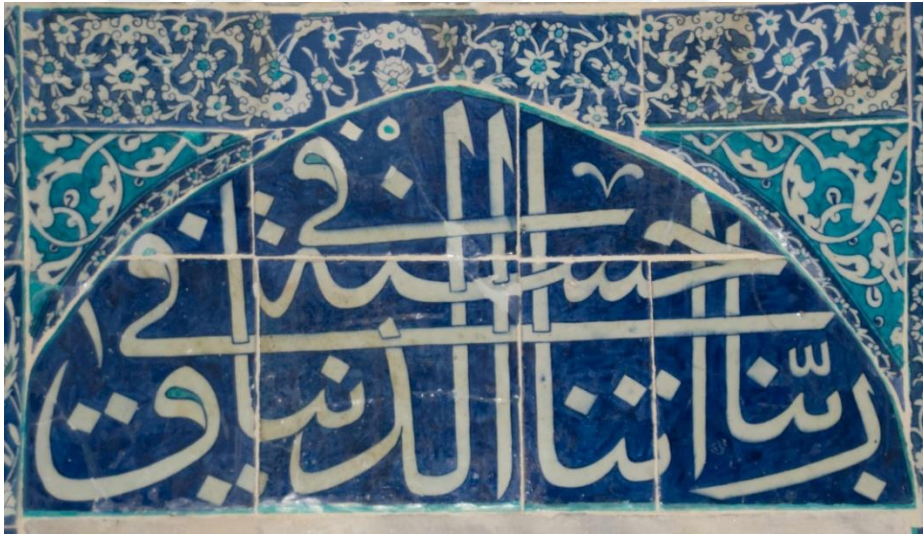 ربّنا اتنا فى الدنيا حسنة وفى